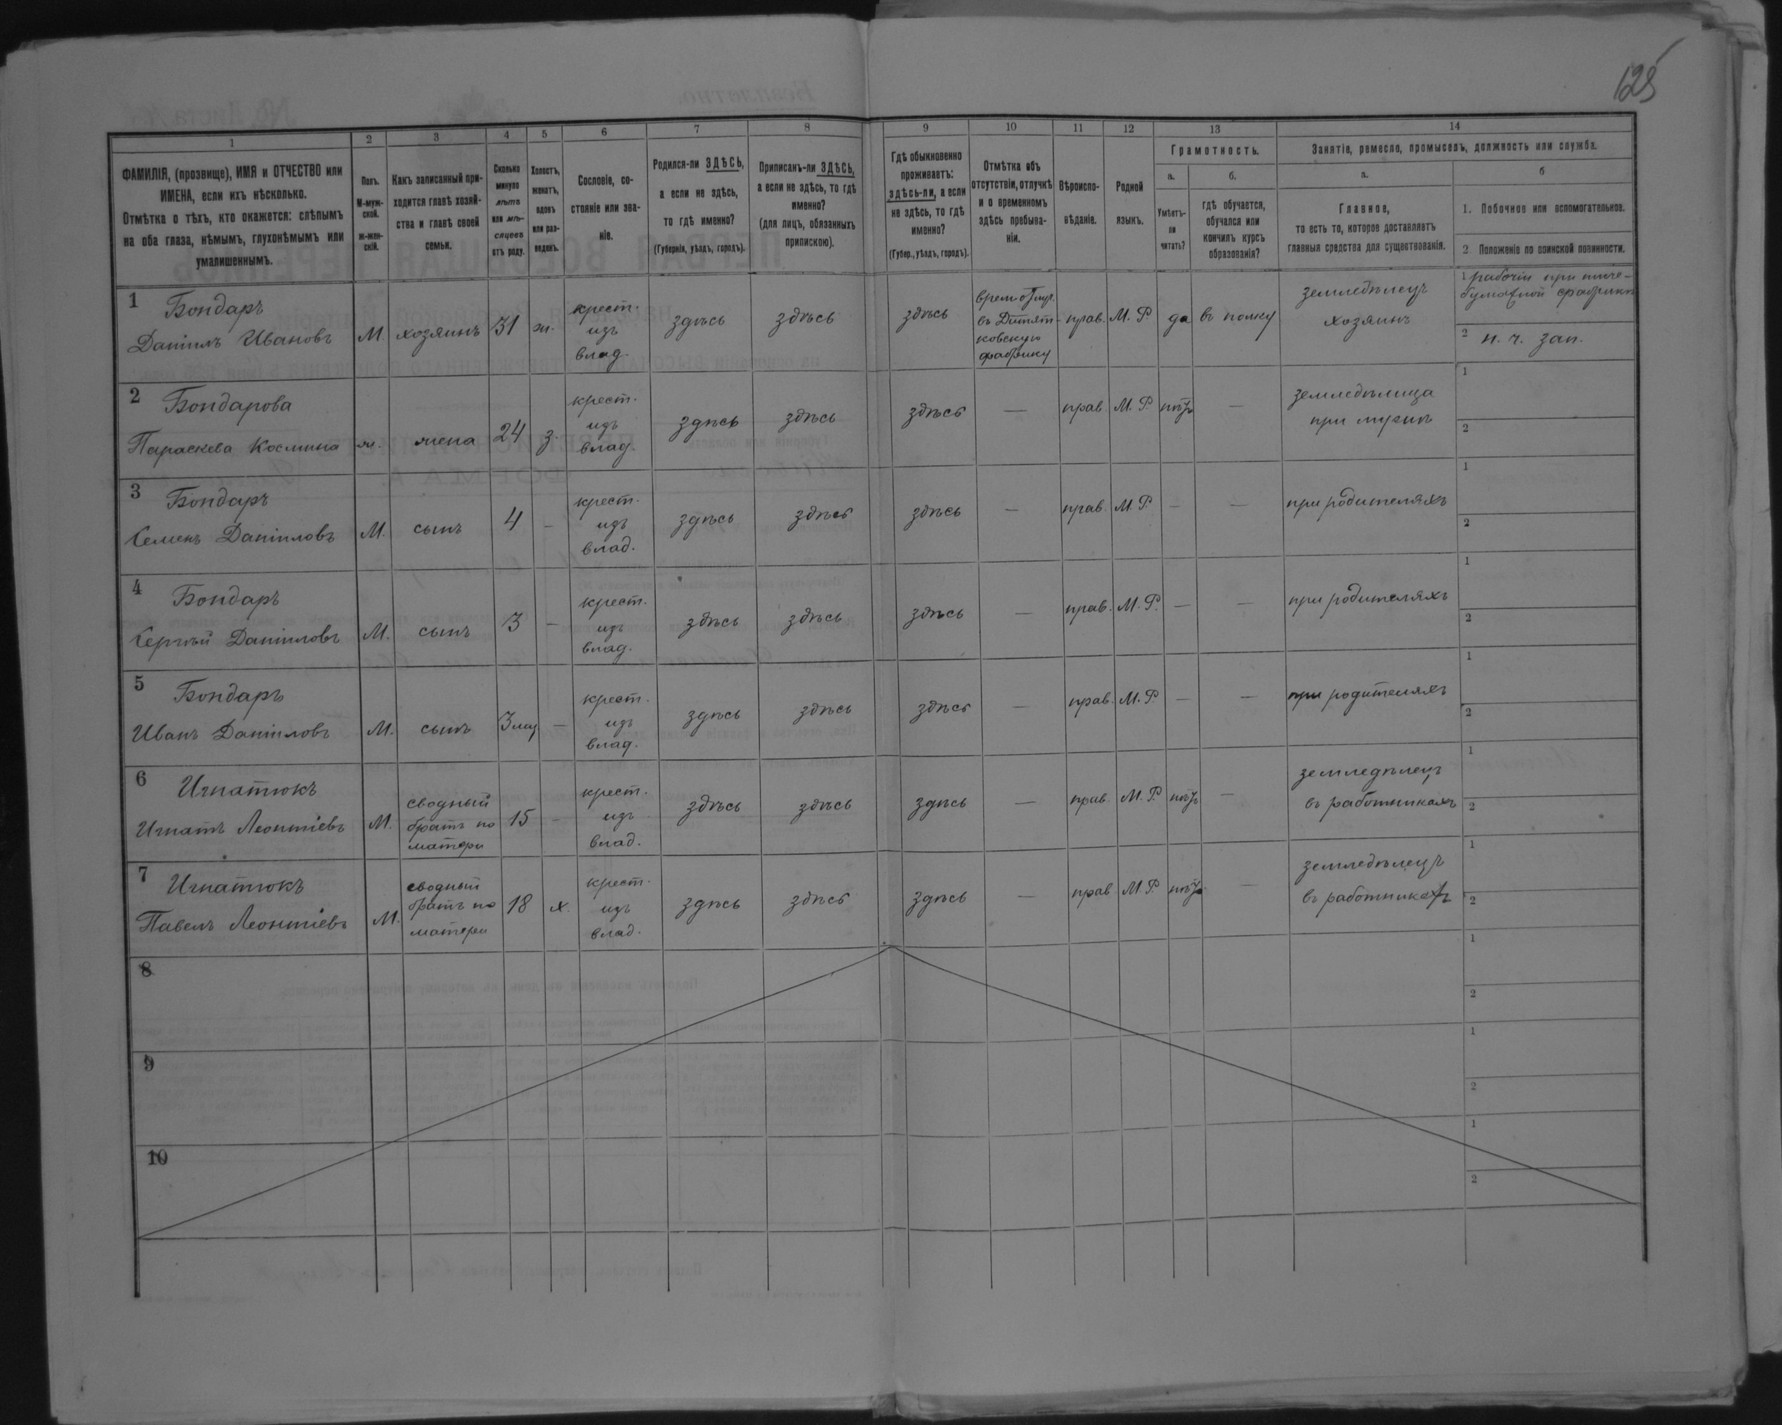 125
1 2 3 4 5 6 7 8 9 10 11 12 13 14
ФАМИЛІЯ, (прозвище), ИМЯ и ОТЧЕСТВО или
ИМЕНА, если ихъ нѣсколько.
Отмѣтка о тѣхъ, кто окажется: слѣпымъ
на оба глаза, нѣмымъ, глухонѣмымъ или
умалишеннымъ.
Полъ.
М-муж-
ской.
ж-жен-
скій.
Какъ записанный при-
ходится главѣ хозяй-
ства и главѣ своей
семьи.
Сколько
минуло
лѣтъ
или мѣ-
сяцевъ
отъ роду.
Холостъ,
женатъ,
вдовъ
или раз-
веденъ.
Сословіе, со-
стояніе или зва-
ніе.
Родился-ли ЗДѢСЬ,
а если не здѣсь,
то гдѣ именно?
(Губернія, уѣздъ, городъ).
Приписанъ-ли ЗДѢСЬ,
а если не здѣсь, то гдѣ
именно?
(для лицъ, обязанныхъ
припискою).
Гдѣ обыкновенно
проживаетъ:
здѣсь-ли, а если
не здѣсь, то гдѣ
именно?
(Губер., уѣздъ, городъ).
Отмѣтка объ
отсутствіи, отлучкѣ
и о временномъ
здѣсь пребыва-
ніи.
Вѣроиспо-
вѣданіе.
Родной
языкъ.
Грамотность.
а.
Умѣетъ-
ли
читать?
б.
гдѣ обучается,
обучался или
кончилъ курсъ
образованія?
Занятіе, ремесло, промыселъ, должность или служба.
а.
Главное,
то есть то, которое доставляетъ
главныя средства для существованія.
б
1. Побочное или вспомогательное.
2 Положеніе по воинской повинности.
1 Бондарь
Даніилъ Ивановъ
М.
хозяинъ
31
ж.
крест.
изъ
влад.
здѣсь
здѣсь
здѣсь
въ Дитят-
ковскую
фабрику
прав.
М. Р.
да
въ полку
земледѣлецъ
хозяинъ
1 рабочій при писче-
бумажной фабрикѣ
2 н. ч. зап.
2 Бондарова
Параскева Космина
ж.
жена
24
з.
крест.
изъ
влад.
здѣсь
здѣсь
здѣсь
—
прав.
М. Р.
нѣтъ
—
земледѣлица
при мужѣ
1
2
3 Бондарь
Семенъ Даніиловъ
М.
сынъ
4
—
крест.
изъ
влад.
здѣсь
здѣсь
здѣсь
—
прав.
М. Р.
—
—
при родителяхъ
1
2
4 Бондарь
Сергѣй Даніиловъ
М.
сынъ
3
—
крест.
изъ
влад.
здѣсь
здѣсь
здѣсь
—
прав.
М. Р.
—
—
при родителяхъ
1
2
5 Бондарь
Иванъ Даніиловъ
М.
сынъ
3 мц
—
крест.
изъ
влад.
здѣсь
здѣсь
здѣсь
—
прав.
М. Р.
—
—
при родителяхъ
1
2
6 Игнатюкъ
Игнатъ Леонтіевъ
М.
сводный
братъ по
матери
15
-
крест.
изъ
влад.
здѣсь
здѣсь
здѣсь
—
прав.
М. Р.
нѣтъ
—
земледѣлецъ
въ работникахъ
1
2
7 Игнатюкъ
Павелъ Леонтіевъ
М.
сводный
братъ по
матери
18
х.
крест.
изъ
влад.
здѣсь
здѣсь
здѣсь
—
прав.
М. Р.
нѣтъ
—
земледѣлецъ
въ работникахъ
1
2
8
1
2
9
1
2
10
1
2